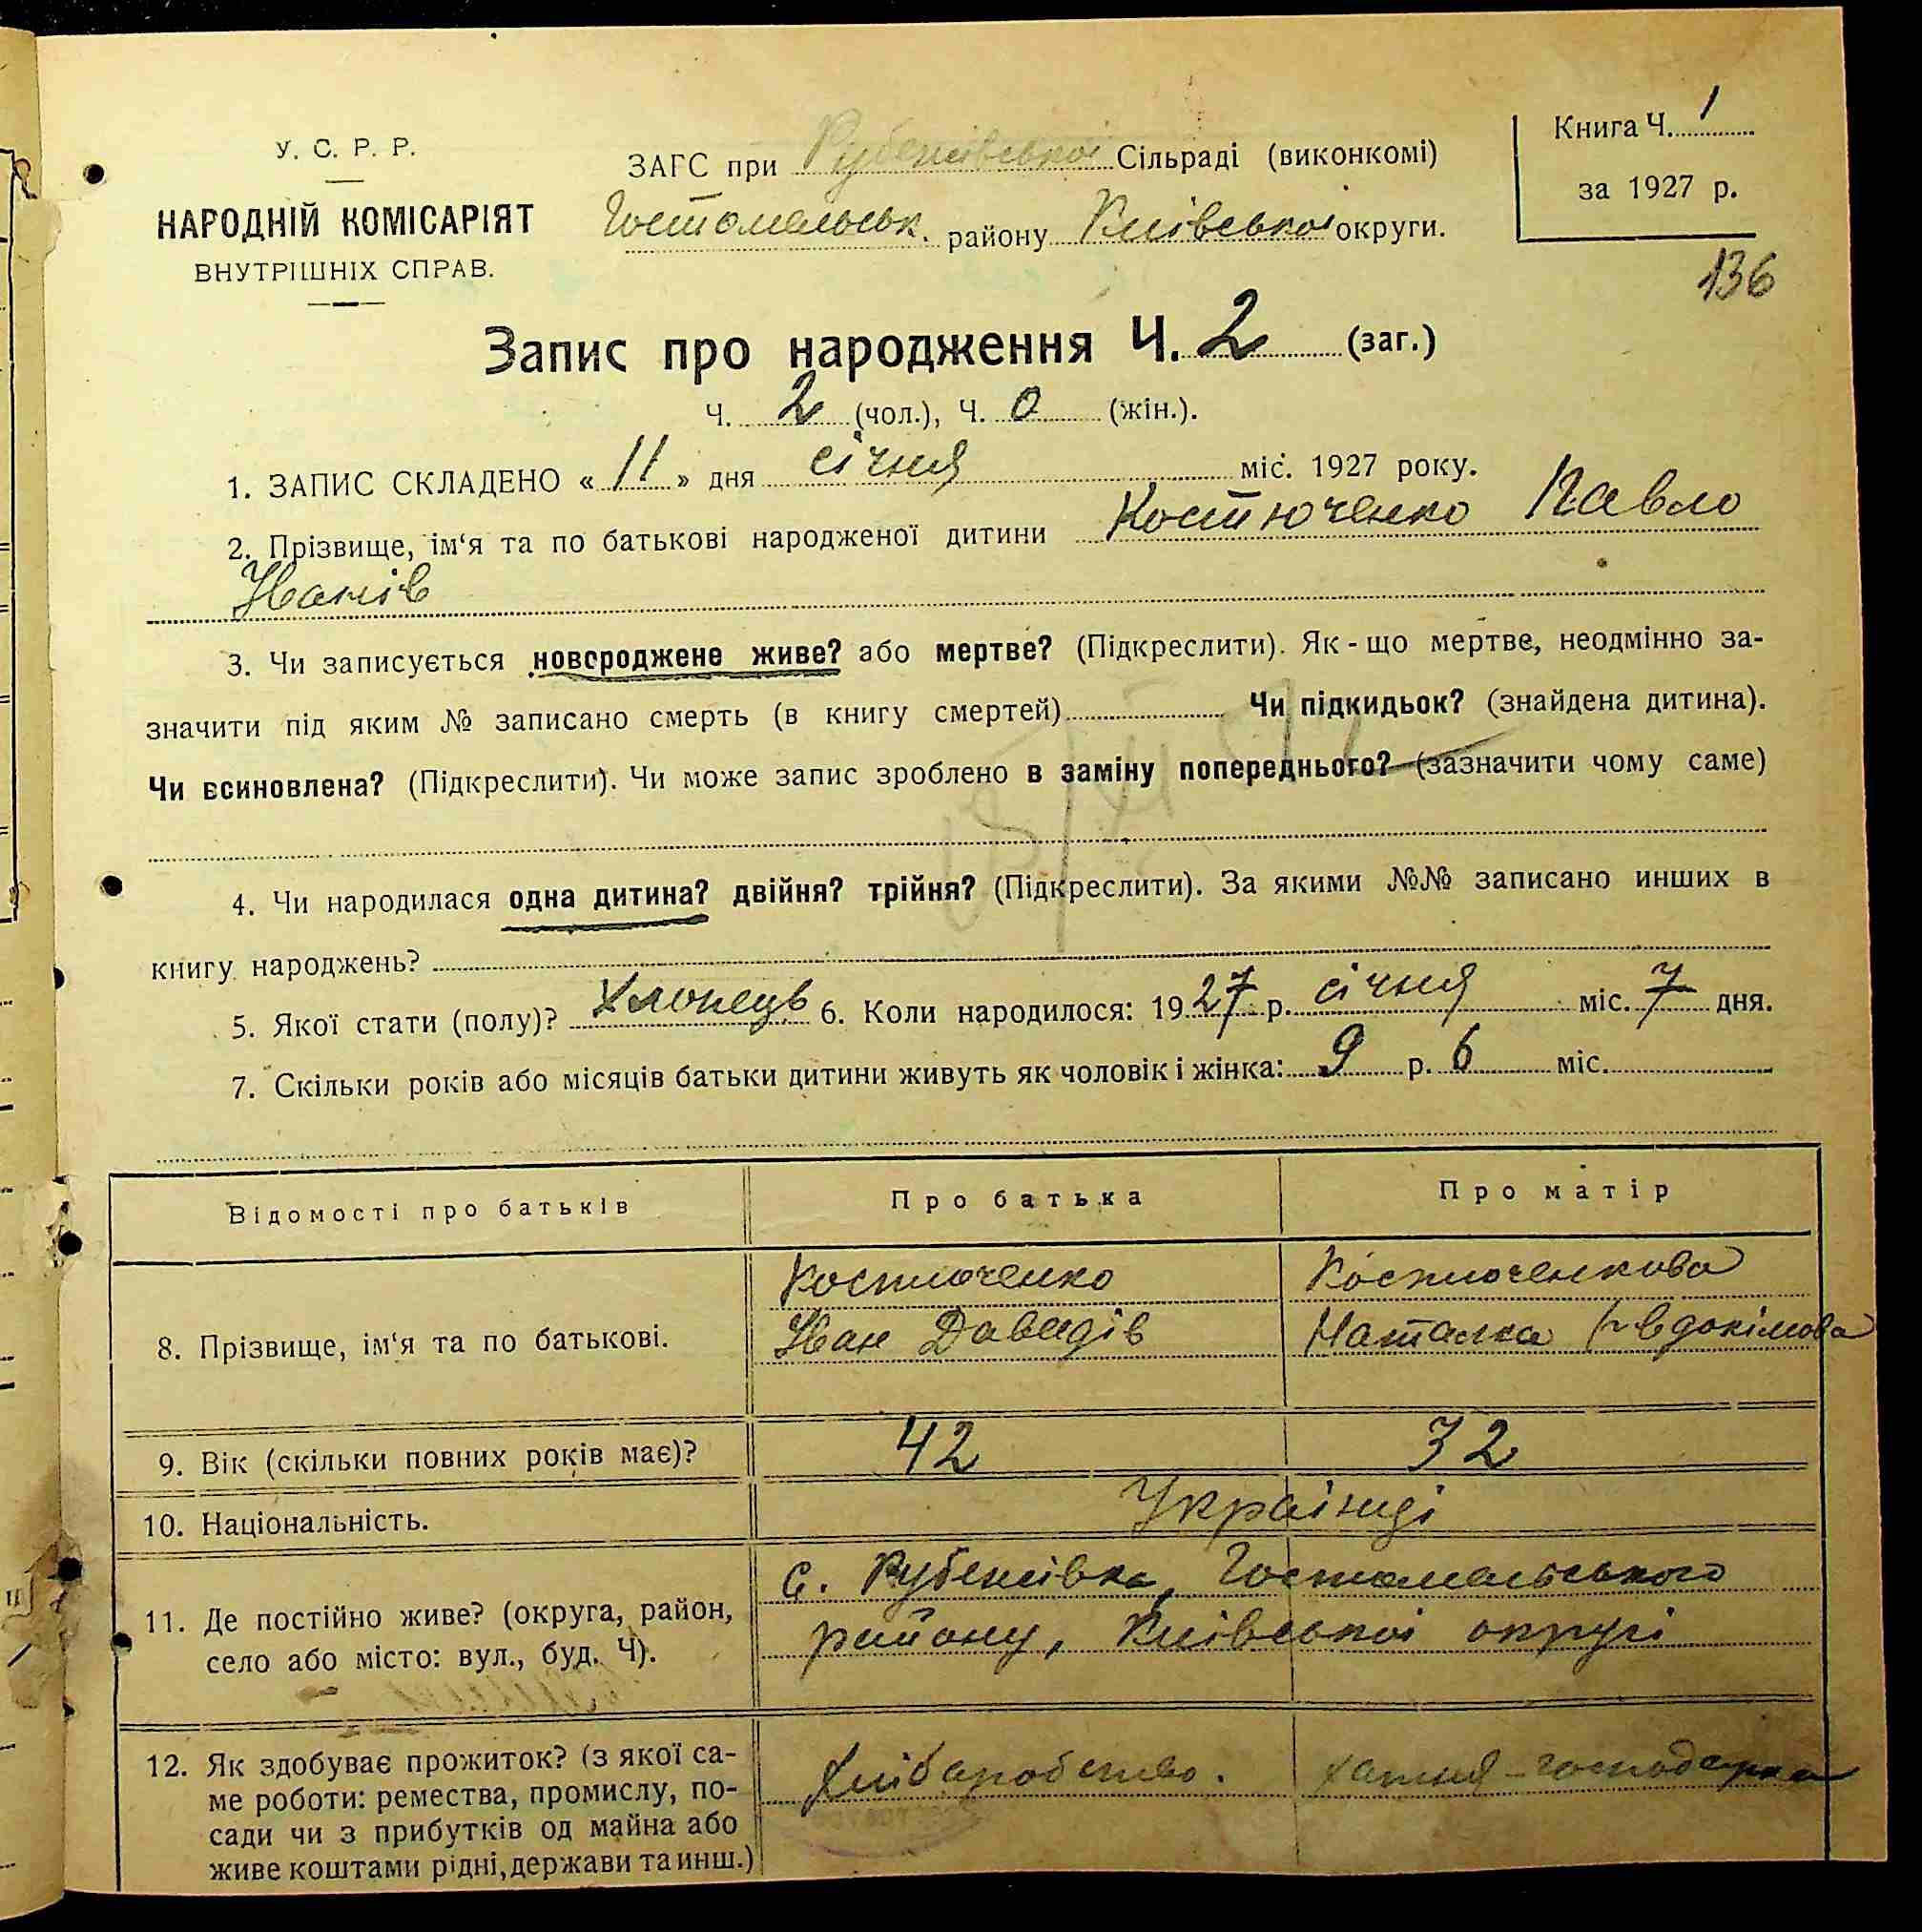 У. С. Р. Р.
НАРОДНІЙ КОМІСАРІЯТ
ВНУТРІШНІХ СПРАВ.
ЗАГС при Рубежівської Сільраді (виконкомі)
Гостомельськ. району Київської округи.
Книга Ч. 1
за 1927 р.
136
Запис про народження Ч. 2 (заг.)
Ч. 2 (чол.), Ч. 0 (жін.).
1. ЗАПИС СКЛАДЕНО « 11 » дня січня міс. 1927 року.
2. Прізвище, ім‘я та по батькові народженої дитини Костюченко Павло
Іванів
3. Чи записується новороджене живе? або мертве? (Підкреслити). Як-що мертве, неодмінно за-
значити під яким № записано смерть (в книгу смертей) Чи підкидьок? (знайдена дитина).
Чи всиновлена? (Підкреслити). Чи може запис зроблено в заміну попереднього? (зазначити чому саме)
4. Чи народилася одна дитина? двійня? трійня? (Підкреслити). За якими №№ записано инших в
книгу народжень?
5. Якої стати (полу)? Хлопець 6. Коли народилося: 1927 р. січня міс. 7 дня.
7. Скільки років або місяців батьки дитини живуть як чоловік і жінка: 9 р. 6 міс.
Відомості про батьків Про батька Про матір
8. Прізвище, ім‘я та по батькові.
Костюченко
Іван Давидів
Костюченкова
Наталка Євдокімова
9. Вік (скільки повних років має)? 42 32
10. Національність. Українці
11. Де постійно живе? (округа, район,
село або місто: вул., буд. Ч).
с. Рубежівка, Гостомельського
району, Київської округі
12. Як здобуває прожиток? (з якої са-
ме роботи: ремества, промислу, по-
сади чи з прибутків од майна або
живе коштами рідні, держави та инш.)
Хліборобство.
хатня-господарка